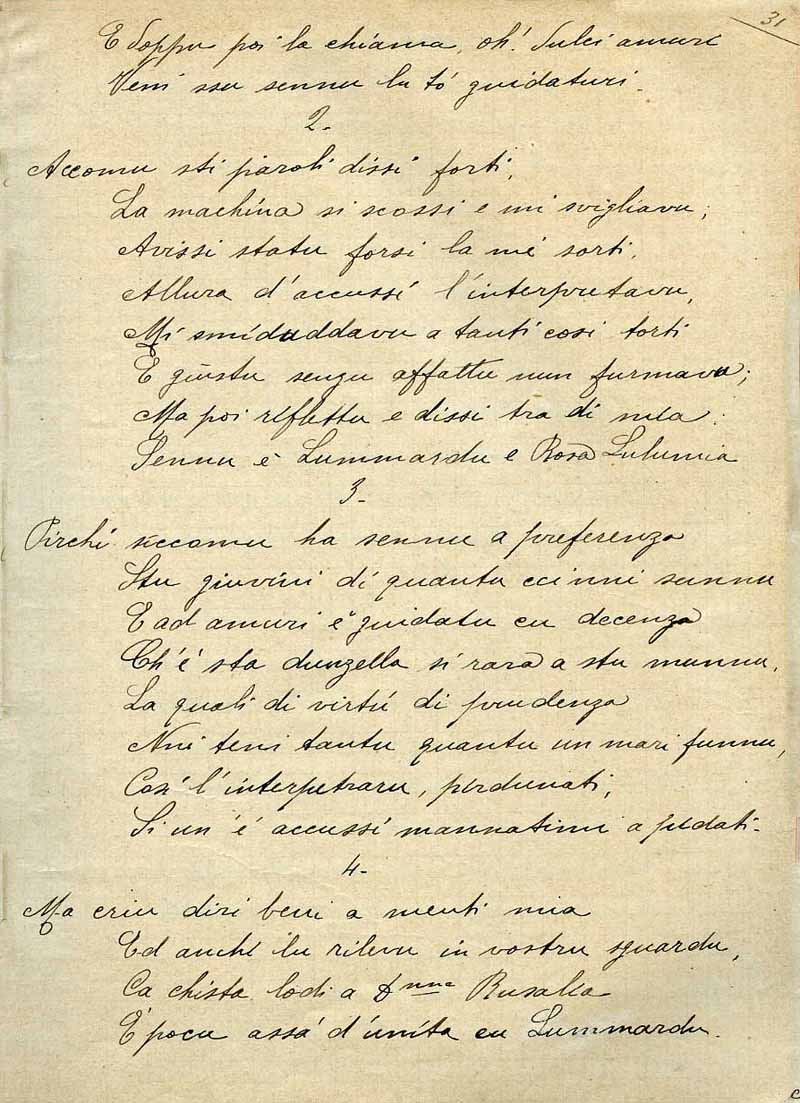 31
E doppu poi la chiama, oh! dulci amuri
Veni ssu sennu lu tó guidaturi.
2.
Accomu sti paroli dissi forti,
La machina si scossi e mi svigliavu;
Avissi statu forsi la mé sorti,
Allura d'accussí l'interpretavu,
Mi smiduddavu a tanti cosi torti
E giustu senzu affattu nun furmavu;
Ma poi riflettu e dissi tra di mia:
Sennu é Lummardu e Rosa Lulumia
3.
Pirchí siccomu ha sennu a preferenza
Stu giuvini di quantu cci nni sunnu
E ad amuri é guidatu cu decenza
Ch'é sta dunzella sí rara a stu munnu,
La quali di virtú di prudenza
Nni teni tantu quantu un mari funnu,
Cosí l'interpetraru, pirdunati,
Si un'é accussí mannatimi a pidati.
4.
Ma criu diri beni a menti mia
Ed anchi lu rilevu in vostru sguardu,
Ca chista lodi a Dnna Rusalia
É pocu assá d'unita cu Lummardu.